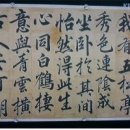 秀色連陰成
坐卧於其間
怡然得此生
心同白鶴棲
意與青雲橫